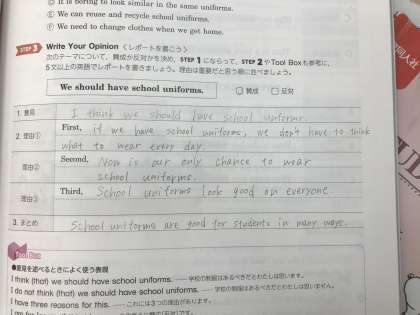 Ⓓ It is boring to look similar in the same uniforms.
Ⓔ We can reuse and recycle school uniforms.
Ⓕ We need to change clothes when we get home.
STEP 3 Write Your Opinion〈レポートを書こう〉
次のテーマについて，賛成か反対かを決め，STEP 1 にならって，STEP 2 やTool Boxも参考に，
5文以上の英語でレポートを書きましょう。理由は重要だと思う順に並べましょう。
We should have school uniforms.
賛成 反対
1. 意見 I think we should have school uniform.
2. 理由① First, if we have school uniforms, we don't have to think
what to wear every day.
理由② Second, Now is our only chance to wear
school uniforms.
理由③ Third, School uniforms look good on everyone.
3. まとめ School uniforms are good for students in many ways.
Tool Box
●意見を述べるときによく使う表現
I think (that) we should have school uniforms. 学校の制服はあるべきだとわたしは思います。
I do not think (that) we should have school uniforms. 学校の制服はあるべきだとわたしは思いません。
I have three reasons for this. これには3つの理由があります。